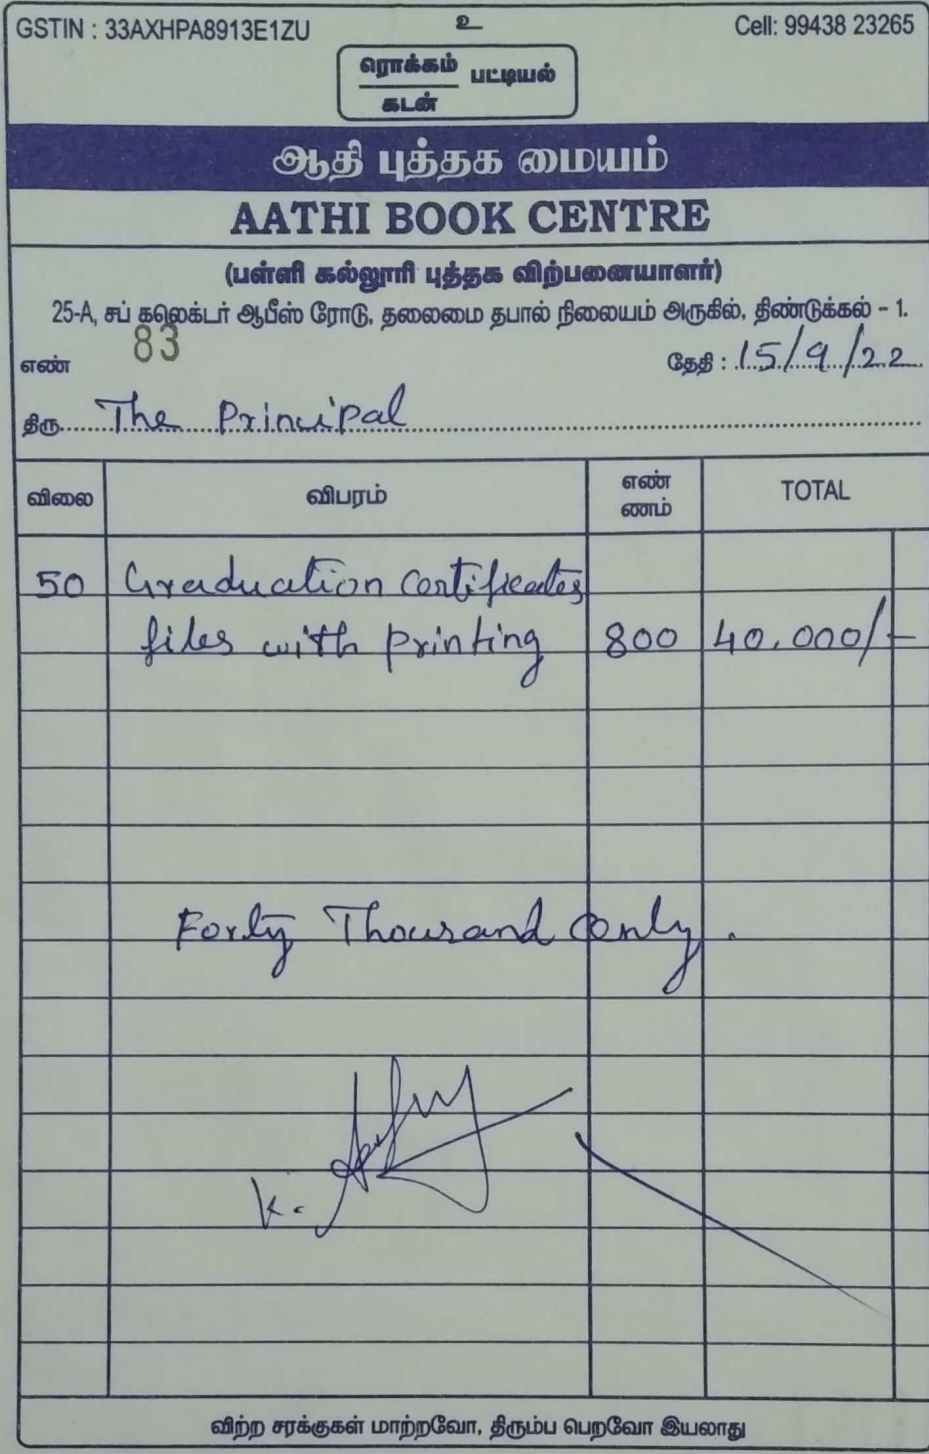 GSTIN : 33AXHPA8913E1ZU உ Cell: 99438 23265
ரொக்கம் பட்டியல்
கடன்
ஆதி புத்தக மையம்
AATHI BOOK CENTRE
(பள்ளி கல்லூரி புத்தக விற்பனையாளர்)
25-A, சப் கலெக்டர் ஆபீஸ் ரோடு, தலைமை தபால் நிலையம் அருகில், திண்டுக்கல் - 1.
எண் 83 தேதி : 15/9/22
திரு. The Principal
விலை விபரம் எண்ணம் TOTAL
50 Graduation Certificates
files with printing 800 40,000/-
Forty Thousand Only.
K.
விற்ற சரக்குகள் மாற்றவோ, திரும்ப பெறவோ இயலாது